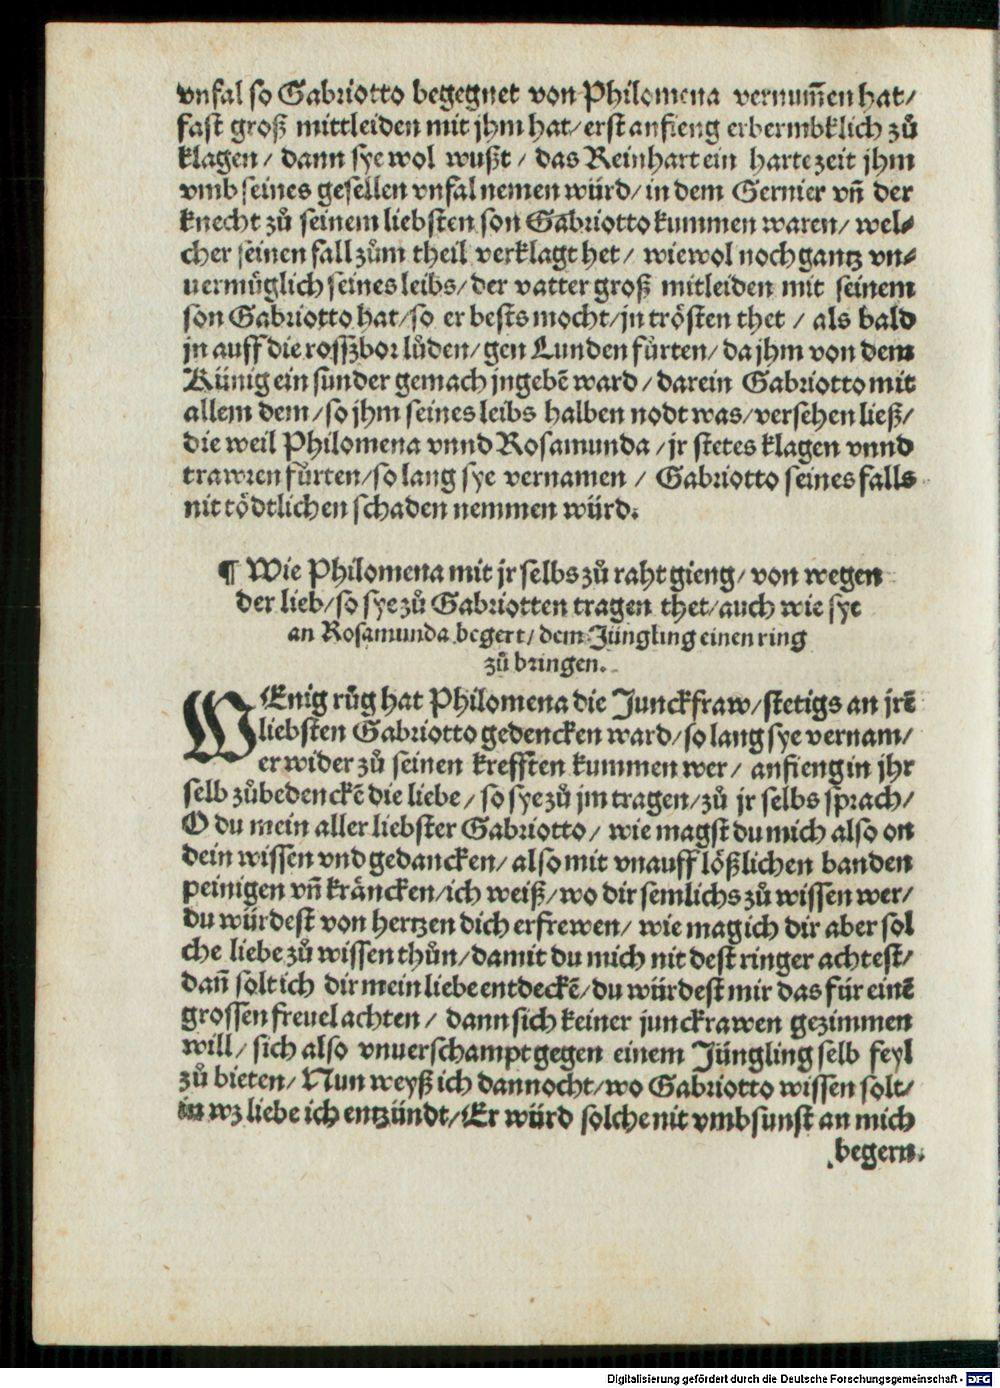 vnfal so Gabriotto begegnet von Philomena vernum̃en hat/
fast groß mittleiden mit jhm hat/ erst anfieng erbermbklich zů
klagen/ dann sye wol wußt/ das Reinhart ein harte zeit jhm
vmb seines gesellen vnfal nemen würd/ in dem Gernier vñ der
knecht zů seinem liebsten son Gabriotto kummen waren/ wel⸗
cher seinen fall zům theil verklagt het/ wiewol noch gantz vn⸗
uermüglich seines leibs/ der vatter groß mitleiden mit seinem
son Gabriotto hat/ so er bests mocht/ jn trösten thet/ als bald
jn auff die rosszbor lůden/ gen Lunden fůrten/ da jhm von dem
Künig ein sunder gemach jngebẽ ward/ darein Gabriotto mit
allem dem/ so jhm seines leibs halben nodt was/ versehen ließ/
die weil Philomena vnnd Rosamunda/ jr stetes klagen vnnd
trawren fůrten/ so lang sye vernamen/ Gabriotto seines falls
nit tödtlichen schaden nemmen würd.
¶ Wie Philomena mit jr selbs zů raht gieng/ von wegen
der lieb/ so sye zů Gabriotten tragen thet/ auch wie sye
an Rosamunda begert/ dem Jüngling einen ring
zů bringen.
WEnig růg hat Philomena die Junckfraw/ stetigs an jrẽ
liebsten Gabriotto gedencken ward/ so lang sye vernam/
er wider zů seinen krefften kummen wer/ anfieng in jhr
selb zůbedenckẽ die liebe/ so sye zů jm tragen/ zů jr selbs sprach/
O du mein aller liebster Gabriotto/ wie magst du mich also on
dein wissen vnd gedancken/ also mit vnaufflößlichen banden
peinigen vñ kräncken/ ich weiß/ wo dir semlichs zů wissen wer/
du würdest von hertzen dich erfrewen/ wie mag ich dir aber sol
che liebe zů wissen thůn/ damit du mich nit dest ringer achtest/
dañ solt ich dir mein liebe entdeckẽ/ du würdest mir das für einẽ
grossen freuel achten/ dann sich keiner junckrawen gezimmen
will/ sich also vnuerschampt gegen einem Jüngling selb feyl
zů bieten/ Nun weyß ich dannocht/ wo Gabriotto wissen solt/
in wz liebe ich entzündt/ Er würd solche nit vmbsunst an mich
begern.
Digitalisierung gefördert durch die Deutsche Forschungsgemeinschaft - DFG